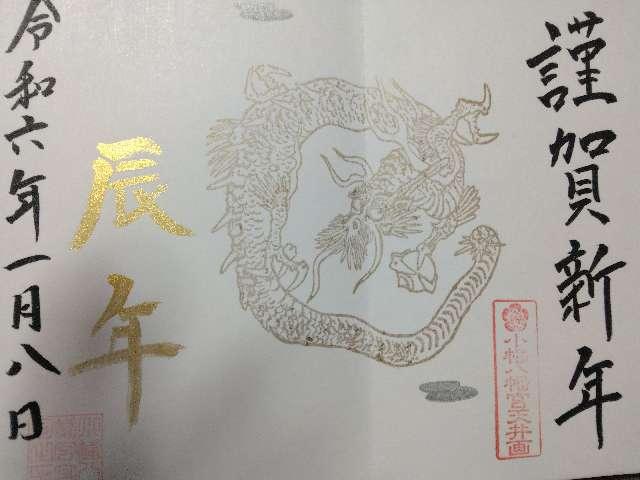 謹賀新年
小幡八幡宮天井画
辰年
令和六年一月八日